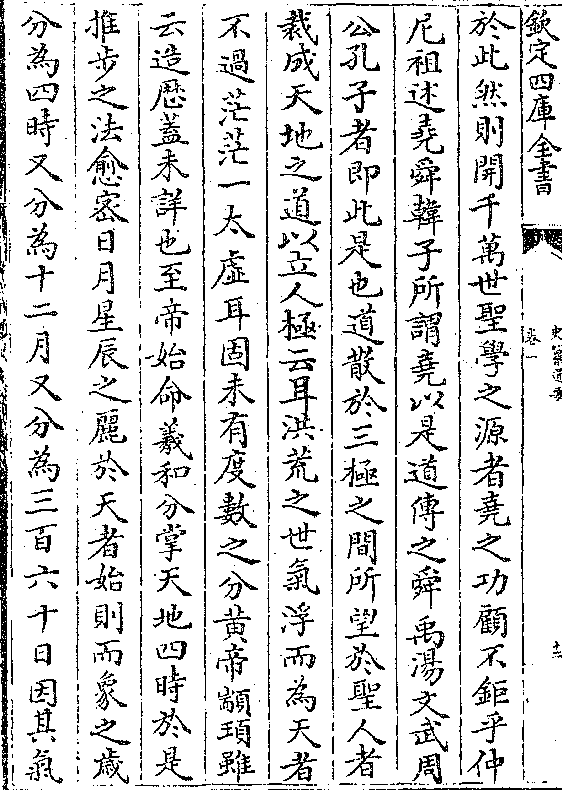 欽定四庫全書
卷一
於此然則開千萬世聖學之源者堯之功顧不鉅乎仲
尼祖述堯舜韓子所謂堯以是道傳之舜禹湯文武周
公孔子者即此是也道散於三極之間所望於聖人者
裁成天地之道以立人極云耳洪荒之世氣浮而為天者
不過茫茫一太虛耳固未有度數之分黃帝顓頊雖
云造厯蓋未詳也至帝始命羲和分掌天地四時於是
推步之法愈宻日月星辰之麗於天者始則而象之歲
分為四時又分為十二月又分為三百六十日因其氣